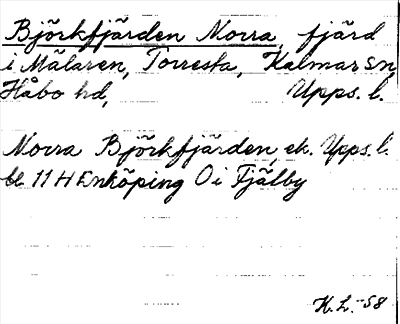 Björkfjärden Norra, fjärd
i Mälaren, Torresta, Kalmar sn,
Håbo hd, Upps. l.
Norra Björkfjärden, ek. Upps. l.
bl 11 H Enköping O i Fjälby
H. L. -58